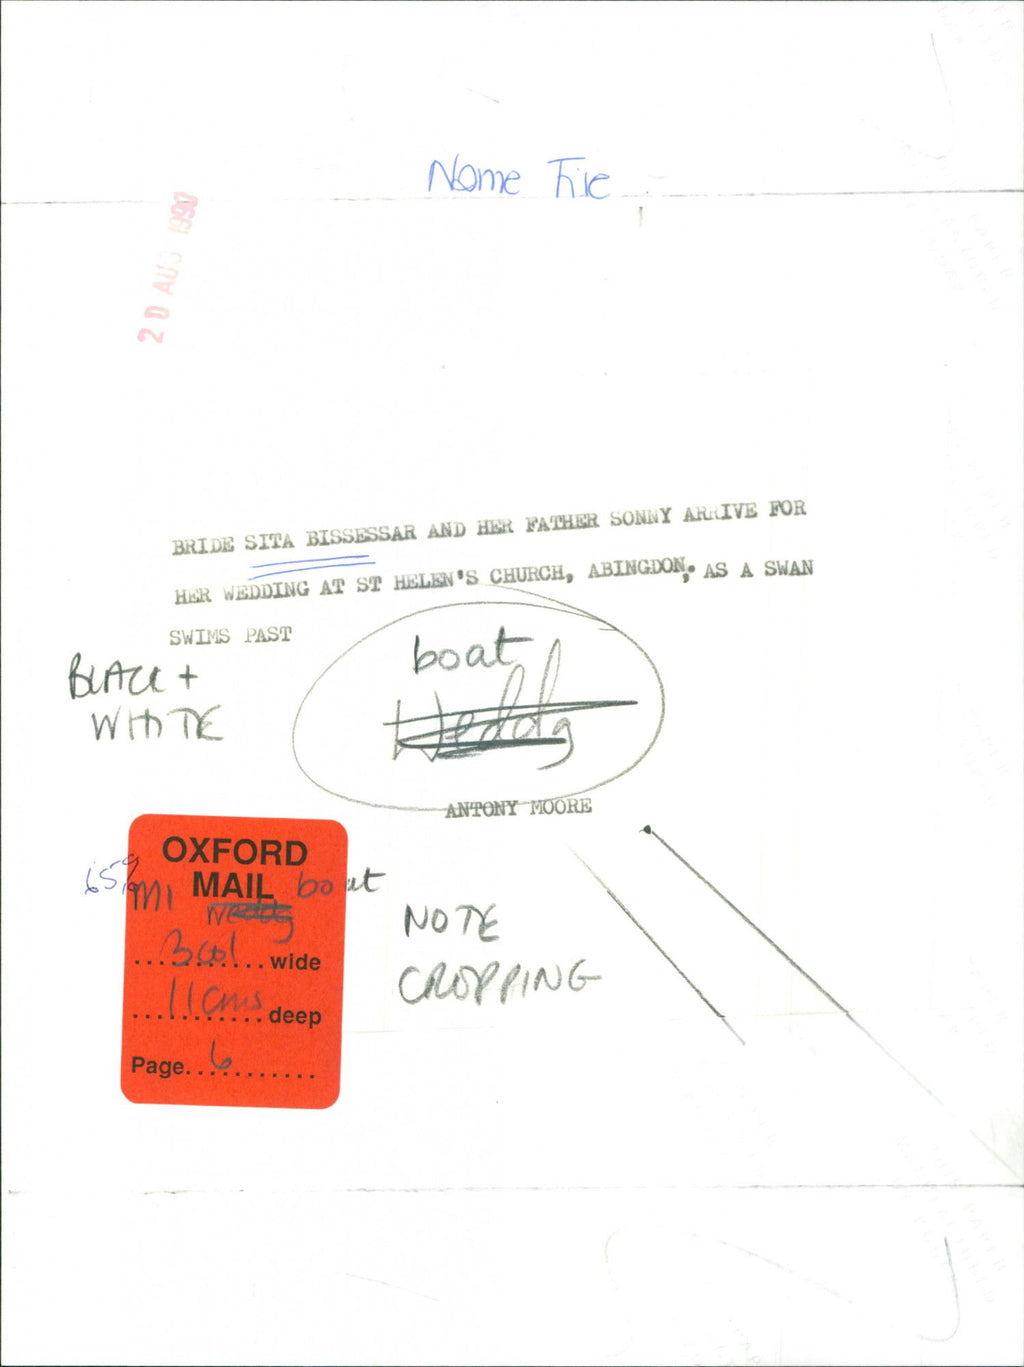 Name File
20 AUG 1990
BRIDE SITA BISSESSAR AND HER FATHER SONNY ARRIVE FOR
HER WEDDING AT ST HELEN'S CHURCH, ABINGDON, AS A SWAN
SWIMS PAST
boat
Weddg
BLACK +
WHITE
ANTONY MOORE
OXFORD
MAIL
65%
M1 boat
Weddg
3 col wide
11 cms deep
Page 6
NOTE
CROPPING